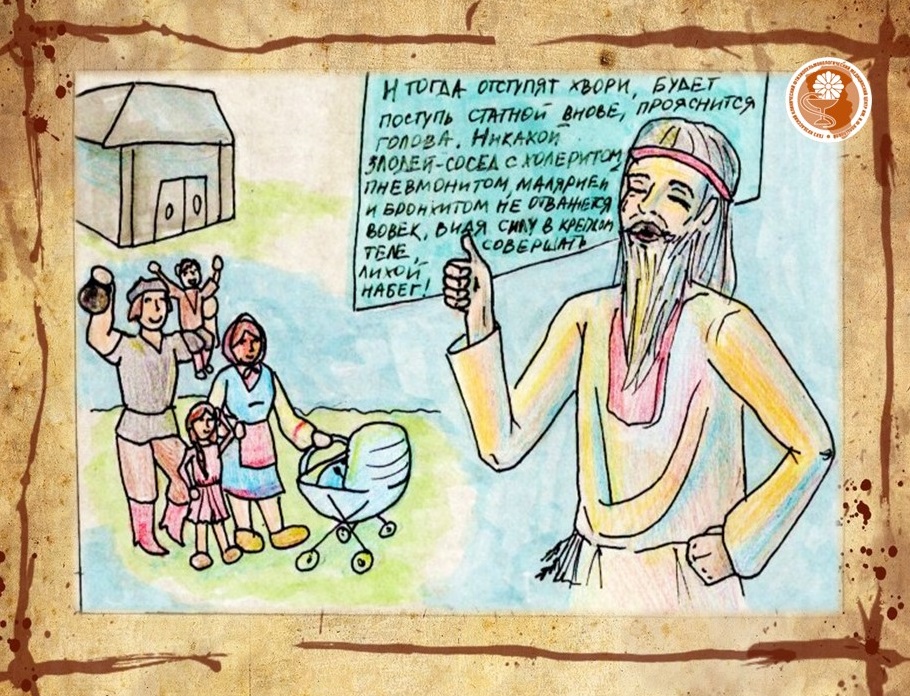 И ТОГДА ОТСТУПЯТ ХВОРИ, БУДЕТ
ПОСТУПЬ СТАТНОЙ ВНОВЕ, ПРОЯСНИТСЯ
ГОЛОВА. НИКАКОЙ
ЗЛОДЕЙ-СОСЕД С ХОЛЕРИТОМ
ПНЕВМОНИТОМ, МАЛЯРИЕЙ
И БРОНХИТОМ НЕ ОТВАЖЕТСЯ
ВОВЕК, ВИДЯ СИЛУ В КРЕПКОМ
ТЕЛЕ, СОВЕРШАТЬ
ЛИХОЙ
НАБЕГ!